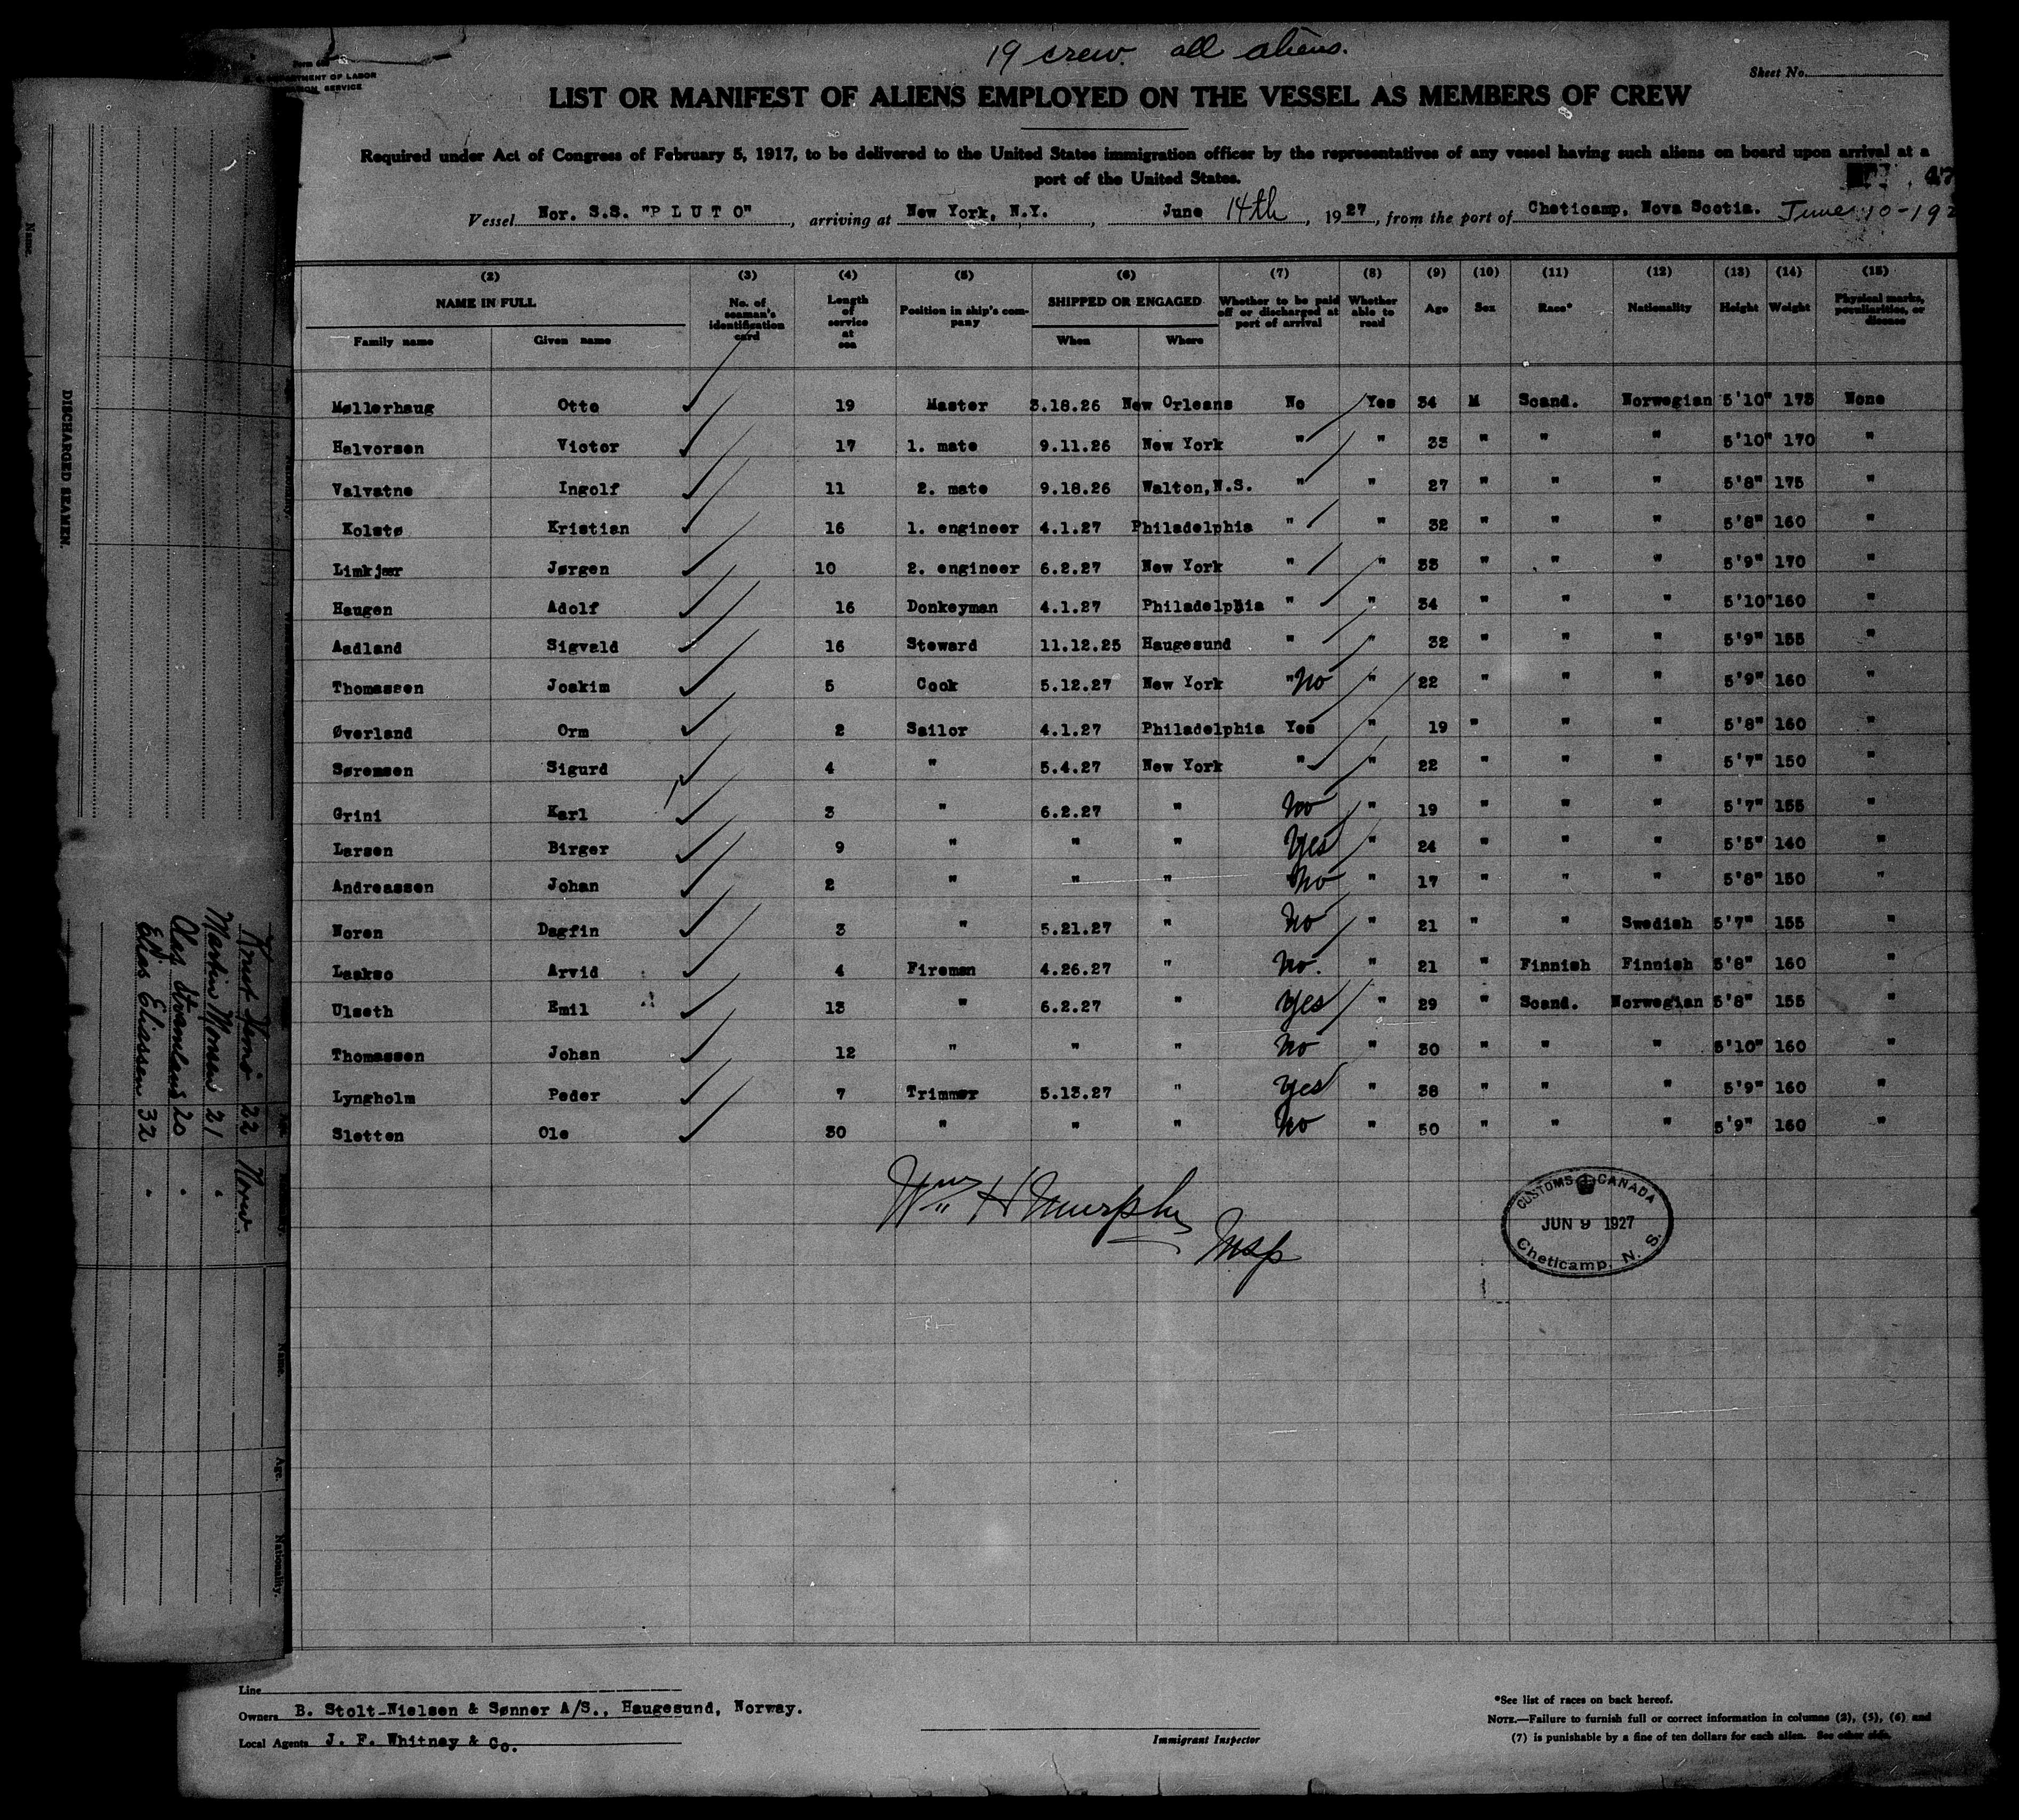 19 crew. all aliens.
Sheet No.
DEPARTMENT OF LABOR
SERVICE
LIST OR MANIFEST OF ALIENS EMPLOYED ON THE VESSEL AS MEMBERS OF CREW
Required under Act of Congress of February 5, 1917, to be delivered to the United States immigration officer by the representatives of any vessel having such aliens on board upon arrival at a
port of the United States.
47
Vessel Nor. S.S. "P L U T O", arriving at New York, N.Y. June 14th, 1927, from the port of Cheticamp, Nova Scotia. June 10-192
(2) (3) (4) (5) (6) (7) (8) (9) (10) (11) (12) (13) (14) (15)
NAME IN FULL No. of seaman's identification card Length of service at sea Position in ship's company SHIPPED OR ENGAGED Whether to be paid off or discharged at port of arrival Whether able to read Age Sex Race* Nationality Height Weight Physical marks, peculiarities, or disease
Family name Given name When Where
Møllerhaug Otto 19 Master 3.18.26 New Orleans No Yes 34 M Scand. Norwegian 5'10" 175 None
Halvorsen Victor 17 1. mate 9.11.26 New York " " 33 " " " 5'10" 170 "
Valvatne Ingolf 11 2. mate 9.18.26 Walton,N.S. " " 27 " " " 5'8" 175 "
Kolstø Kristian 16 1. engineer 4.1.27 Philadelphia " " 32 " " " 5'8" 160 "
Limkjær Jørgen 10 2. engineer 6.2.27 New York " " 33 " " " 5'9" 170 "
Haugen Adolf 16 Donkeyman 4.1.27 Philadelphia " " 34 " " " 5'10" 160 "
Aadland Sigvald 16 Steward 11.12.25 Haugesund " " 32 " " " 5'9" 155 "
Thomassen Joakim 5 Cook 5.12.27 New York " No " 22 " " " 5'9" 160 "
Øverland Orm 2 Sailor 4.1.27 Philadelphia Yes " 19 " " " 5'8" 160 "
Sørensen Sigurd 4 " 5.4.27 New York " " 22 " " " 5'7" 150 "
Grini Karl 3 " 6.2.27 " No " 19 " " " 5'7" 155 "
Larsen Birger 9 " " " Yes " 24 " " " 5'5" 140 "
Andreassen Johan 2 " " " No " 17 " " " 5'8" 150 "
Noren Dagfin 3 " 5.21.27 " No " 21 " " Swedish 5'7" 155 "
Laakso Arvid 4 Fireman 4.26.27 " No. " 21 " Finnish Finnish 5'8" 160 "
Ulseth Emil 13 " 6.2.27 " Yes " 29 " Scand. Norwegian 5'8" 155 "
Thomassen Johan 12 " " " No " 30 " " " 5'10" 160 "
Lyngholm Peder 7 Trimmer 5.13.27 " Yes " 38 " " " 5'9" 160 "
Sletten Ole 30 " " " No " 50 " " " 5'9" 160 "
Wm H Murphy
Insp
CUSTOMS CANADA
JUN 9 1927
Cheticamp, N. S.
Line
Owners B. Stolt-Nielsen & Sønner A/S., Haugesund, Norway.
Local Agents J. F. Whitney & Co.
Immigrant Inspector
*See list of races on back hereof.
NOTE.—Failure to furnish full or correct information in columns (2), (5), (6) and
(7) is punishable by a fine of ten dollars for each alien. See other side.
DISCHARGED SEAMEN.
Name.
Age.
Nationality.
22 Norw.
Martin Monsen 21 "
20 "
Elias Eliassen 32 "
Name.
Age.
Nationality.